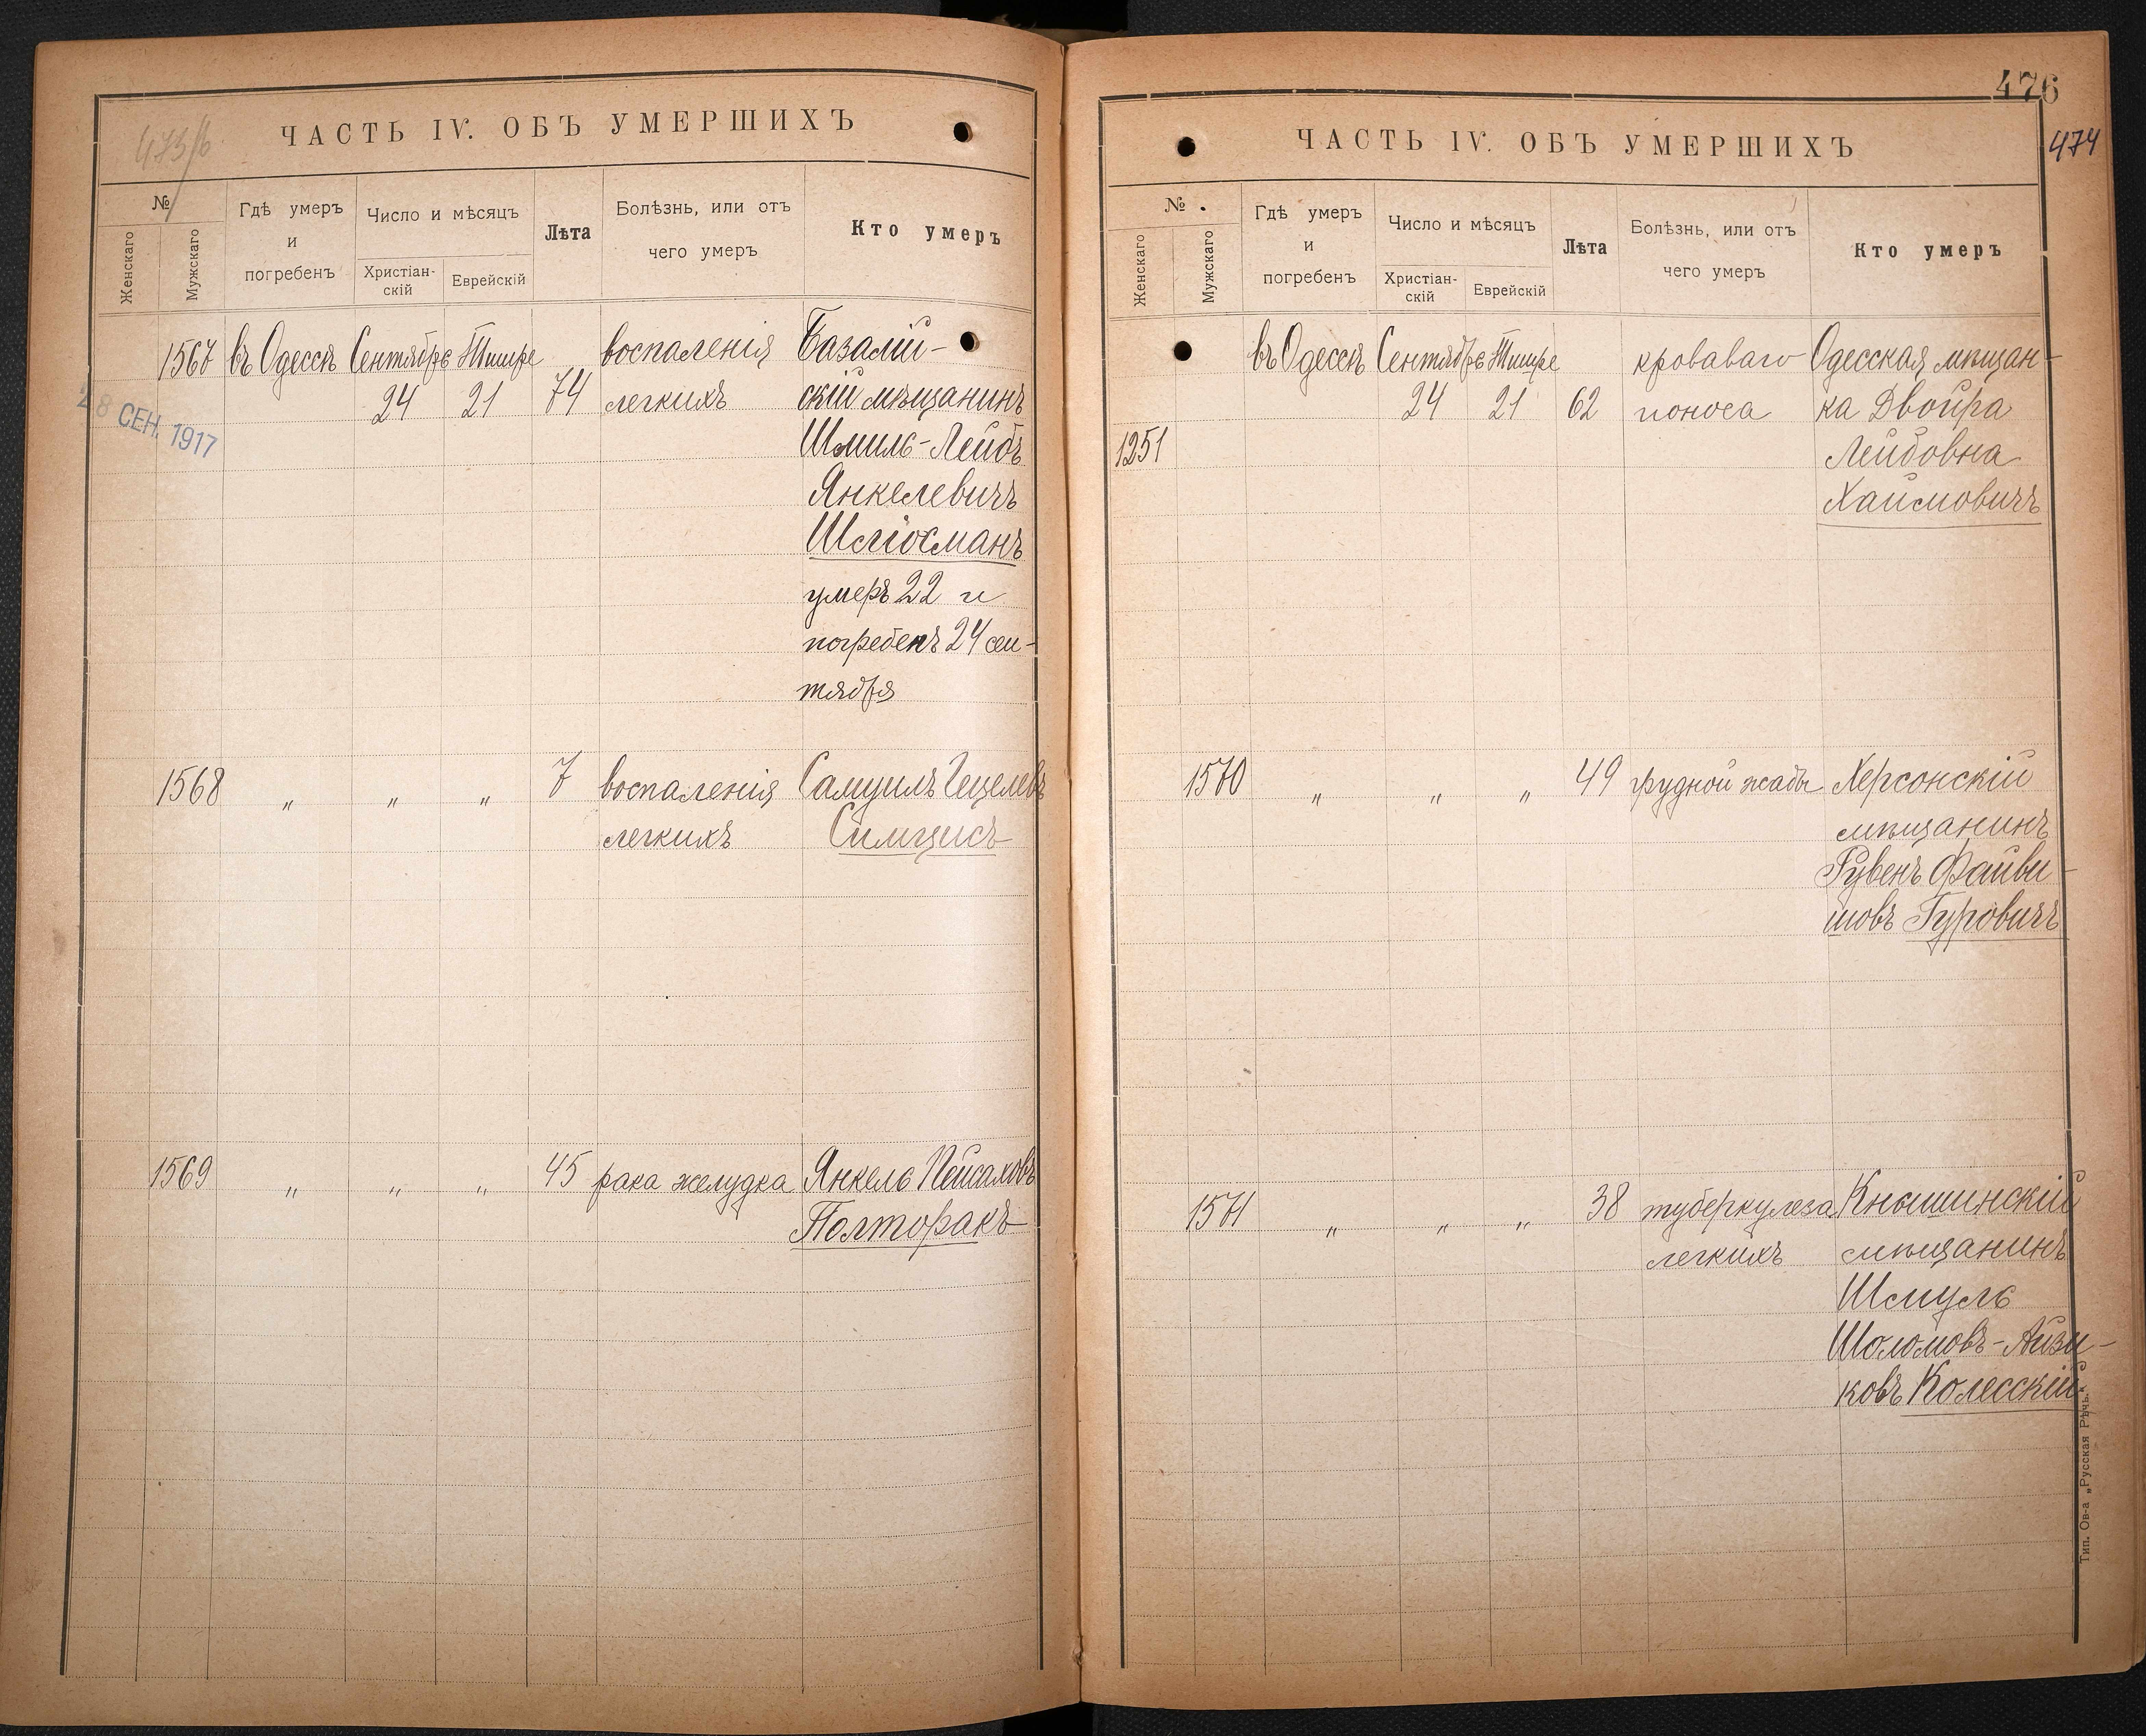 473/б
ЧАСТЬ IV. ОБЪ УМЕРШИХЪ
№
Женскаго
Мужскаго
Гдѣ умеръ
и
погребенъ
Число и мѣсяцъ
Христіан-
скій
Еврейскій
Лѣта
Болѣзнь, или отъ
чего умеръ
Кто умеръ
1567 въ Одессѣ Сентябрь Тишре воспаленія Базалій-
24 21 74 легкихъ скій мѣщанинъ
28 СЕН. 1917
Шмиль-Лейбъ
Янкелевичъ
Шлiосманъ
умеръ 22 и
погребенъ 24 сен-
тября
1568 " " " 7 воспаленія Самуилъ Гецелевъ
легкихъ Симцисъ
1569 " " " 45 рака желудка Янкель Пейсаховъ
Полторакъ
476
474
ЧАСТЬ IV. ОБЪ УМЕРШИХЪ
№
Женскаго
Мужскаго
Гдѣ умеръ
и
погребенъ
Число и мѣсяцъ
Христіан-
скій
Еврейскій
Лѣта
Болѣзнь, или отъ
чего умеръ
Кто умеръ
въ Одессѣ Сентябрь Тишре кроваваго Одесская мѣщан-
24 21 62 поноса ка Двойра
1251 Лейбовна
Хаимовичъ
1570 " " " 49 грудной жабы Херсонскій
мѣщанинъ
Рувенъ Файви-
шовъ Гуровичъ
1571 " " " 38 туберкулеза Кнышинскій
легкихъ мѣщанинъ
Шмуль
Шоломовъ-Айзи-
ковъ Колесскій
Тип. Ов-а „Русская Рѣчь.“